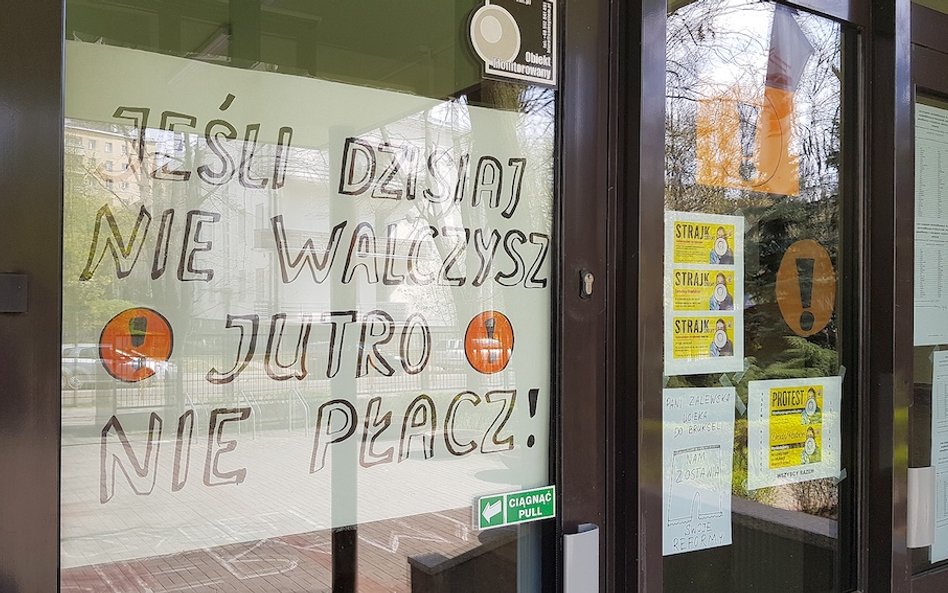 Obiekt
Monitorowany
JEŚLI DZISIAJ
NIE WALCZYSZ
JUTRO
NIE PŁACZ!
CIĄGNĄĆ
PULL
STRAJK
STRAJK
STRAJK
PROTEST
WSZYSCY RAZEM
PANI ZALEWSKA
UCIEKA
DO BRUKSELI
NAM
ZOSTAWIA
SWOJE
REFORMY